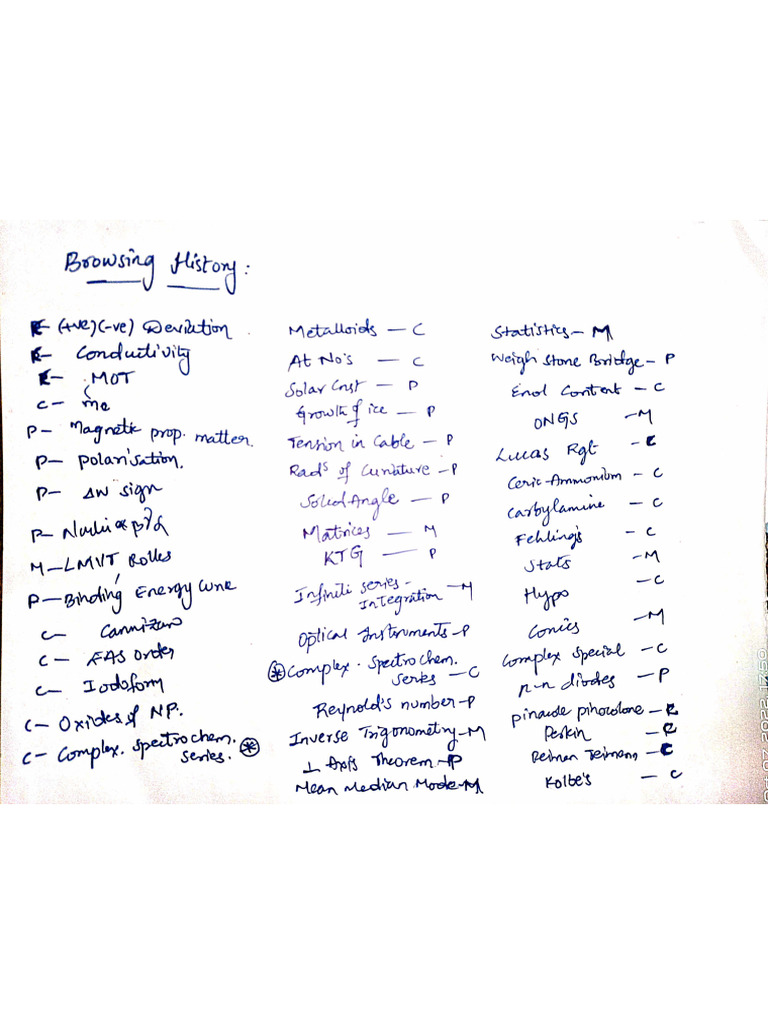 Browsing History:
C- (+ve)(-ve) Deviation
C- Conductivity
C- MOT
C- mc
P- Magnetic prop. matter.
P- polarisation.
P- Δw sign
P- α β
M- LMVT Rolles
P- Binding Energy Curve
C- Cannizaro
C- EAS order
C- Iodoform
C- Oxides of NP.
C- Complex. Spectrochem. series. *
Metalloids - C
At No's - C
Solar Cnst - P
Growth of ice - P
Tension in Cable - P
Rads of Curvature - P
Solid Angle - P
Matrices - M
KTG - P
Infiniti series -
Integration - M
Optical Instruments - P
* Complex. Spectrochem.
series - C
Reynold's number - P
Inverse Trigonometry - M
⊥ Axis Theorem - P
Mean Median Mode - M
Statistics - M
Weigh Stone Bridge - P
Enol Content - C
ONGS - M
Lucas Rgt - C
Ceric-Ammonium - C
Carbylamine - C
Fehling's - C
Stats - M
Hypo - C
Conics - M
Complex Special - C
p-n diodes - P
pinacole pinocolone - C
Perkin - C
Reiman Teimann - C
Kolbe's - C